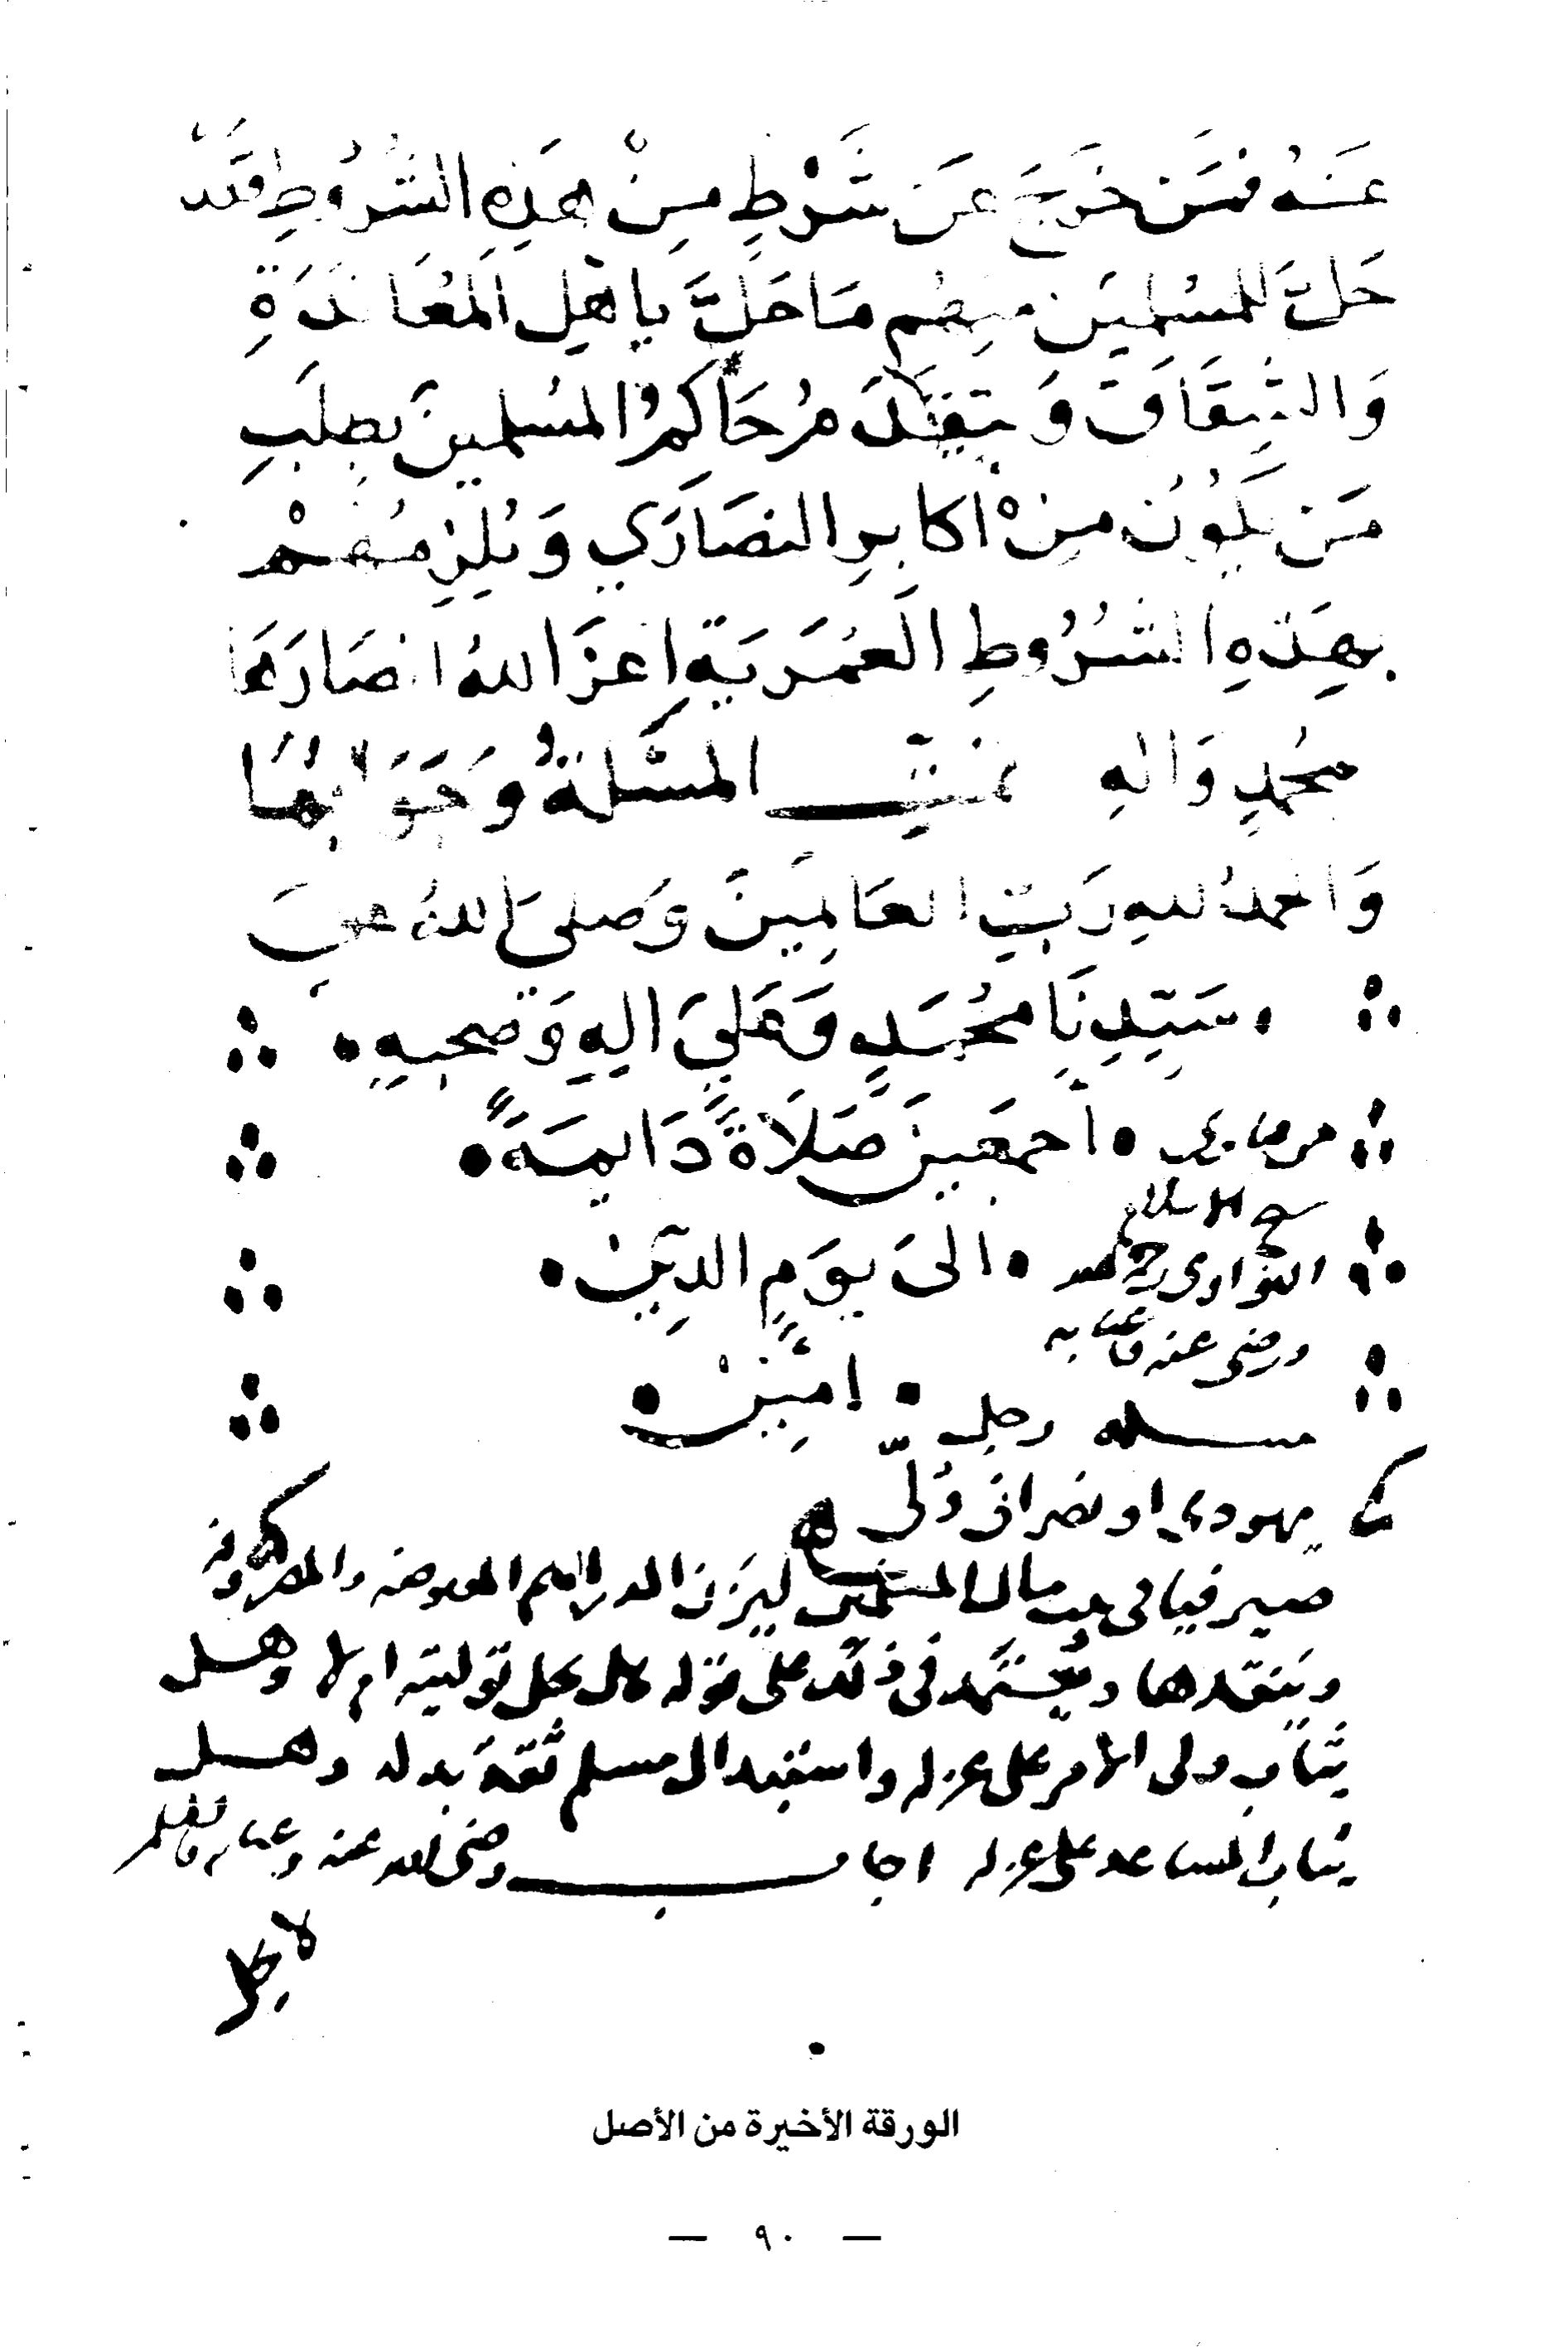 عَنهُ فمَن خَرَجَ عَن شَرْطٍ مِنْ هَذِهِ الشُّرُوطِ فقَدْ
حَلَّ للمسُلميَن مِنهُم مَا حَلَّ بِاهْلِ المُعَانَدَةِ
وَالشِقَاقِ وَيتقَدَمُ حَاكمُ المسُلمينَ بطلَبِ
مَن يَكُونُ مِنْ اكابرِ النصَارَي وَيُلزمُهُمْ
بِهَذِهِ الشُرُوطِ العُمَرَيَةِ اعَزَ اللهُ انصَارَهَا
بمحُمدٍ وَالهِ تمت المسَئلةُ وَجَوَابُهَا
وَالحمدُ للهِ رَبِّ العَالمِينَ وَصَلىَ اللهُ عَلي
سَيّدِنَا محُمَدٍ وَعَليَ الِهِ وَصَحبِهِ
اجمَعيِنَ صَلَاةً دَايمَةً
من فتاوى
شيخ الاسلام
الىَ يوَمِ الدِينِ
النواوى رحمه الله
ورضى عنه وعنا به
امِيَن
مسله رجل
يهودى او نصرانى وُلّى
صيرفيا فى بيت مال المسلمين ليَزِن الدراهم المقبوضه والمصروفه
ويَنقدها ويُعتمد فى ذلك على قوله هل يحل توليته ام لا وهل
يُثاب ولى الامر على عزله واستبدال مسلم ثقة بدله وهل
يثاب المساعد على عزله اجاب رضى الله عنه وعنا به
لا يحل
الورقة الأخيرة من الأصل
— ٩٠ —